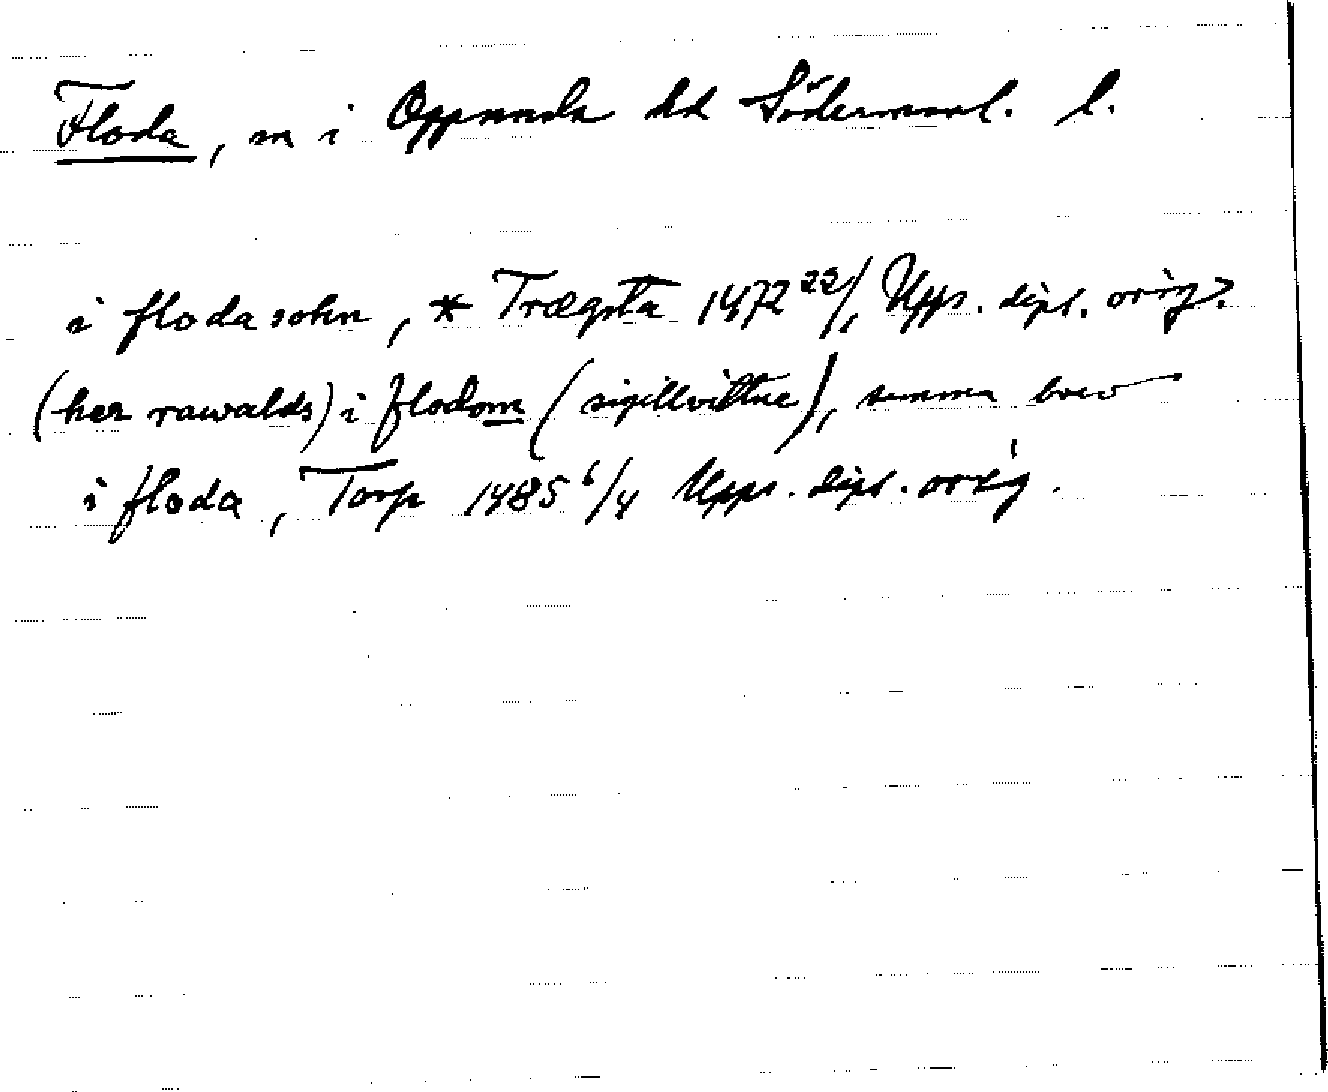 Floda, sn i Oppunda hd Södermanl. l.
i floda sokn, * Trægsta 1472 22/1, Upps. dipl. orig?
(her rawalds) i flodom (sigillvittne), samma brev
i floda, Torp 1485 6/4 Upps. dipl. orig.